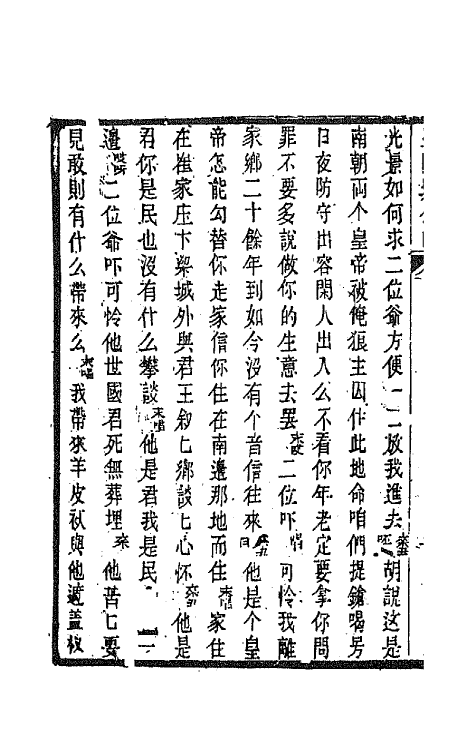 光景如何求二位爺方便一二放我進去 胡說这是
南朝両个皇帝被俺狼主囚住此地命咱們提鎗喝号
日夜防守岀容閑人出入么不看你年老定要拿你問
罪不要多說做你的生意去罢 二位吓 可怜我離
家鄉二十餘年到如今沒有个音信往來 他是个皇
帝怎能勾替你走家信你住在南邊那地而住 家住
在崔家庄卞梁城外與君王叙匕鄉談匕心怀 他是
君你是民也沒有什么攀談 他是君我是民
邊 二位爺吓可怜他世國君死無葬埋 他苦匕要
見敢則有什么帶來么 我帶來羊皮袄與他遮蓋